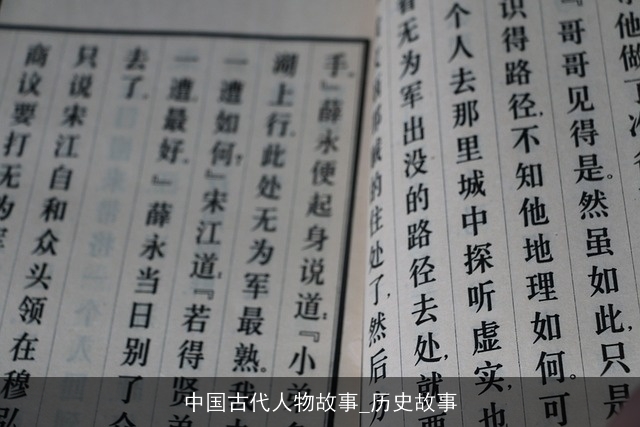 他做
『哥哥见得是。然虽如此,只是
识得路径,不知他地理如何。可
个人去那里城中探听虚实,也
无为军出没的路径去处,就要
的住处了,然后方
手。』薛永便起身说道:『小弟多
湖上行。此处无为军最熟。我去
一遭如何?』宋江道:『若得贤弟
一遭最好。』薛永当日别了众
去了。
只说宋江自和众头领在穆弘
商议要打无为军
中国古代人物故事_历史故事